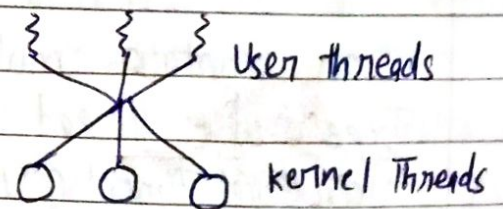 User threads
kernel Threads